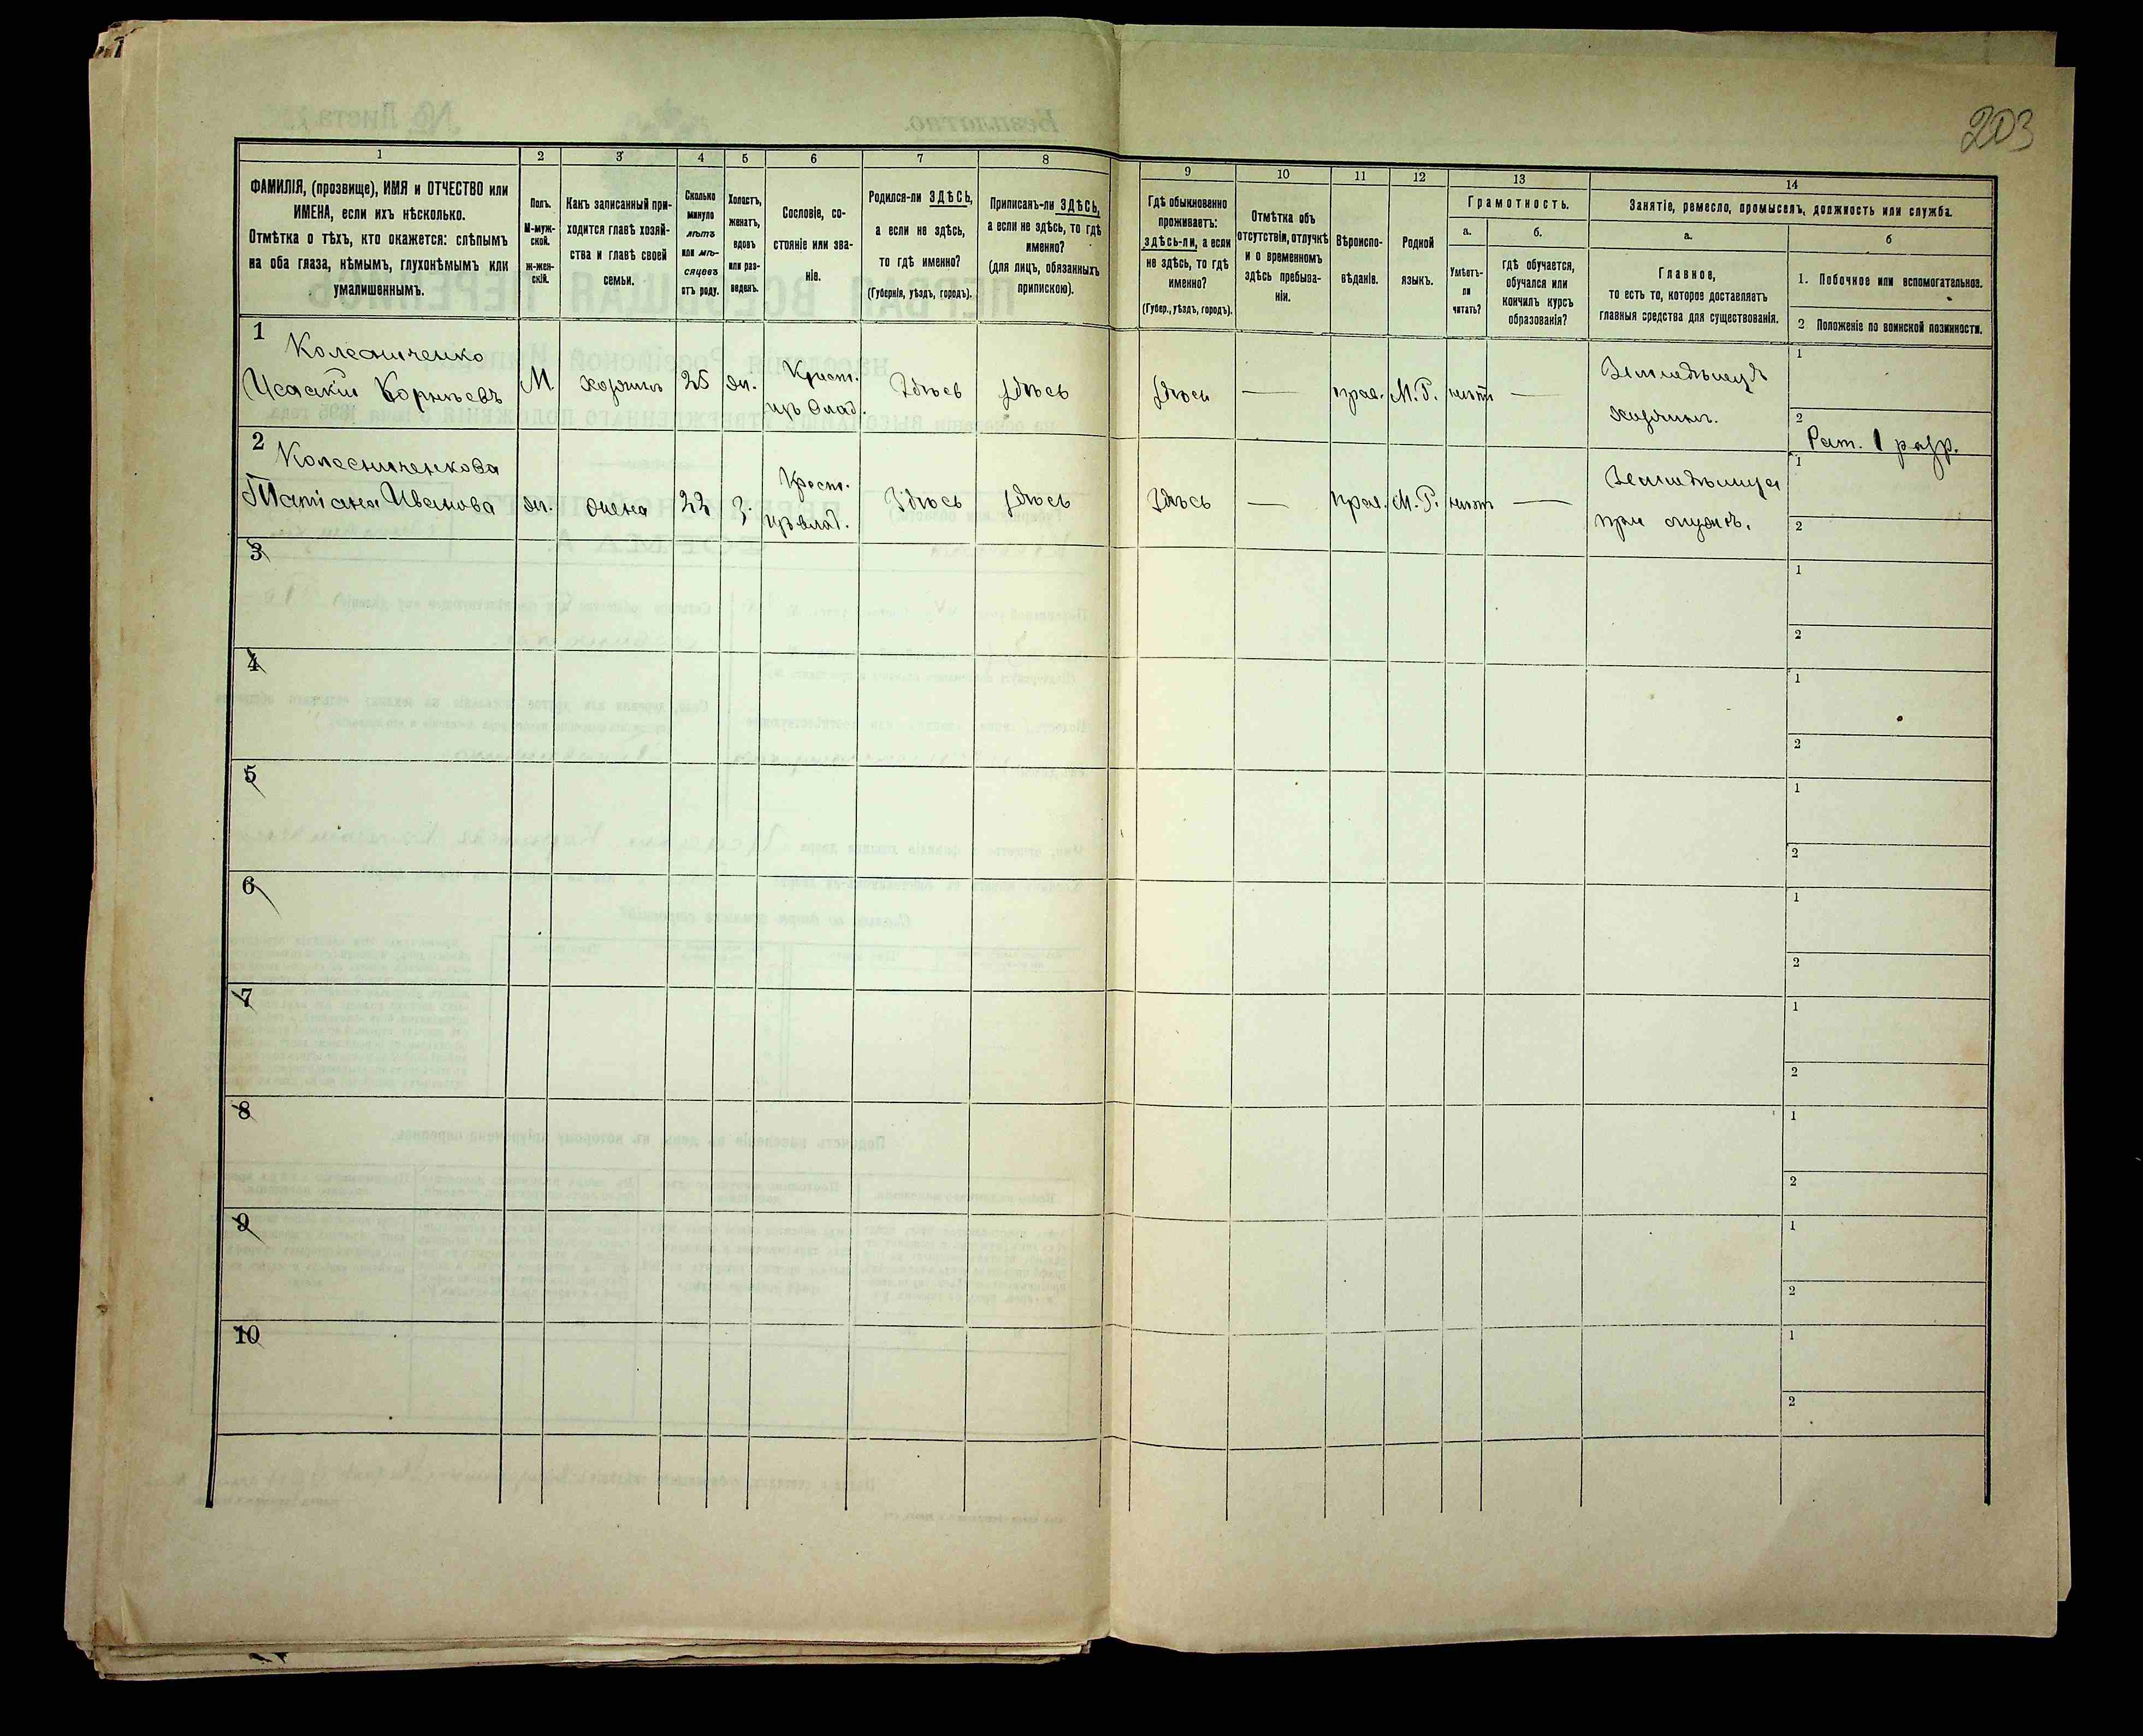 203
1 2 3 4 5 6 7 8 9 10 11 12 13 14
ФАМИЛІЯ, (прозвище), ИМЯ и ОТЧЕСТВО или
ИМЕНА, если ихъ нѣсколько.
Отмѣтка о тѣхъ, кто окажется: слѣпымъ
на оба глаза, нѣмымъ, глухонѣмымъ или
умалишеннымъ.
Полъ.
М-муж-
ской.
Ж-жен-
скій.
Какъ записанный при-
ходится главѣ хозяй-
ства и главѣ своей
семьи.
Сколько
минуло
лѣтъ
или мѣ-
сяцевъ
отъ роду.
Холостъ,
женатъ,
вдовъ
или раз-
веденъ.
Сословіе, со-
стояніе или зва-
ніе.
Родился-ли ЗДѢСЬ,
а если не здѣсь,
то гдѣ именно?
(Губернія, уѣздъ, городъ).
Приписанъ-ли ЗДѢСЬ,
а если не здѣсь, то гдѣ
именно?
(для лицъ, обязанныхъ
припискою).
Гдѣ обыкновенно
проживаетъ:
здѣсь-ли, а если
не здѣсь, то гдѣ
именно?
(Губер., уѣздъ, городъ).
Отмѣтка объ
отсутствіи, отлучкѣ
и о временномъ
здѣсь пребыва-
ніи.
Вѣроиспо-
вѣданіе.
Родной
языкъ.
Грамотность.
а.
Умѣетъ-
ли
читать?
б.
гдѣ обучается,
обучался или
кончилъ курсъ
образованія?
Занятіе, ремесло, промыселъ, должность или служба.
а.
Главное,
то есть то, которое доставляетъ
главныя средства для существованія.
б
1. Побочное или вспомогательное.
2 Положеніе по воинской повинности.
1
Колесниченко
Исаакій Корнѣевъ
М.
хозяинъ
25
ж.
Крест.
изъ влад.
Здѣсь
здѣсь
здѣсь
—
прав.
М. Р.
нѣтъ
—
Земледѣлецъ
хозяинъ.
1
2
Рат. 1 разр.
2
Колесниченкова
Татіана Иванова
ж.
жена
22
З.
Крест.
изъ влад.
Здѣсь
здѣсь
Здѣсь
—
прав.
М. Р.
нѣтъ
—
Земледѣлица
при мужѣ.
1
2
3
1
2
4
1
2
5
1
2
6
1
2
7
1
2
8
1
2
9
1
2
10
1
2